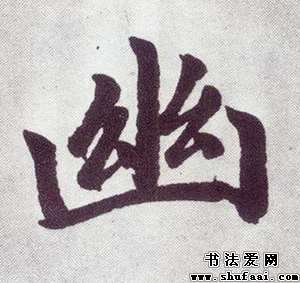 幽
书法爱网
www.shufaai.com